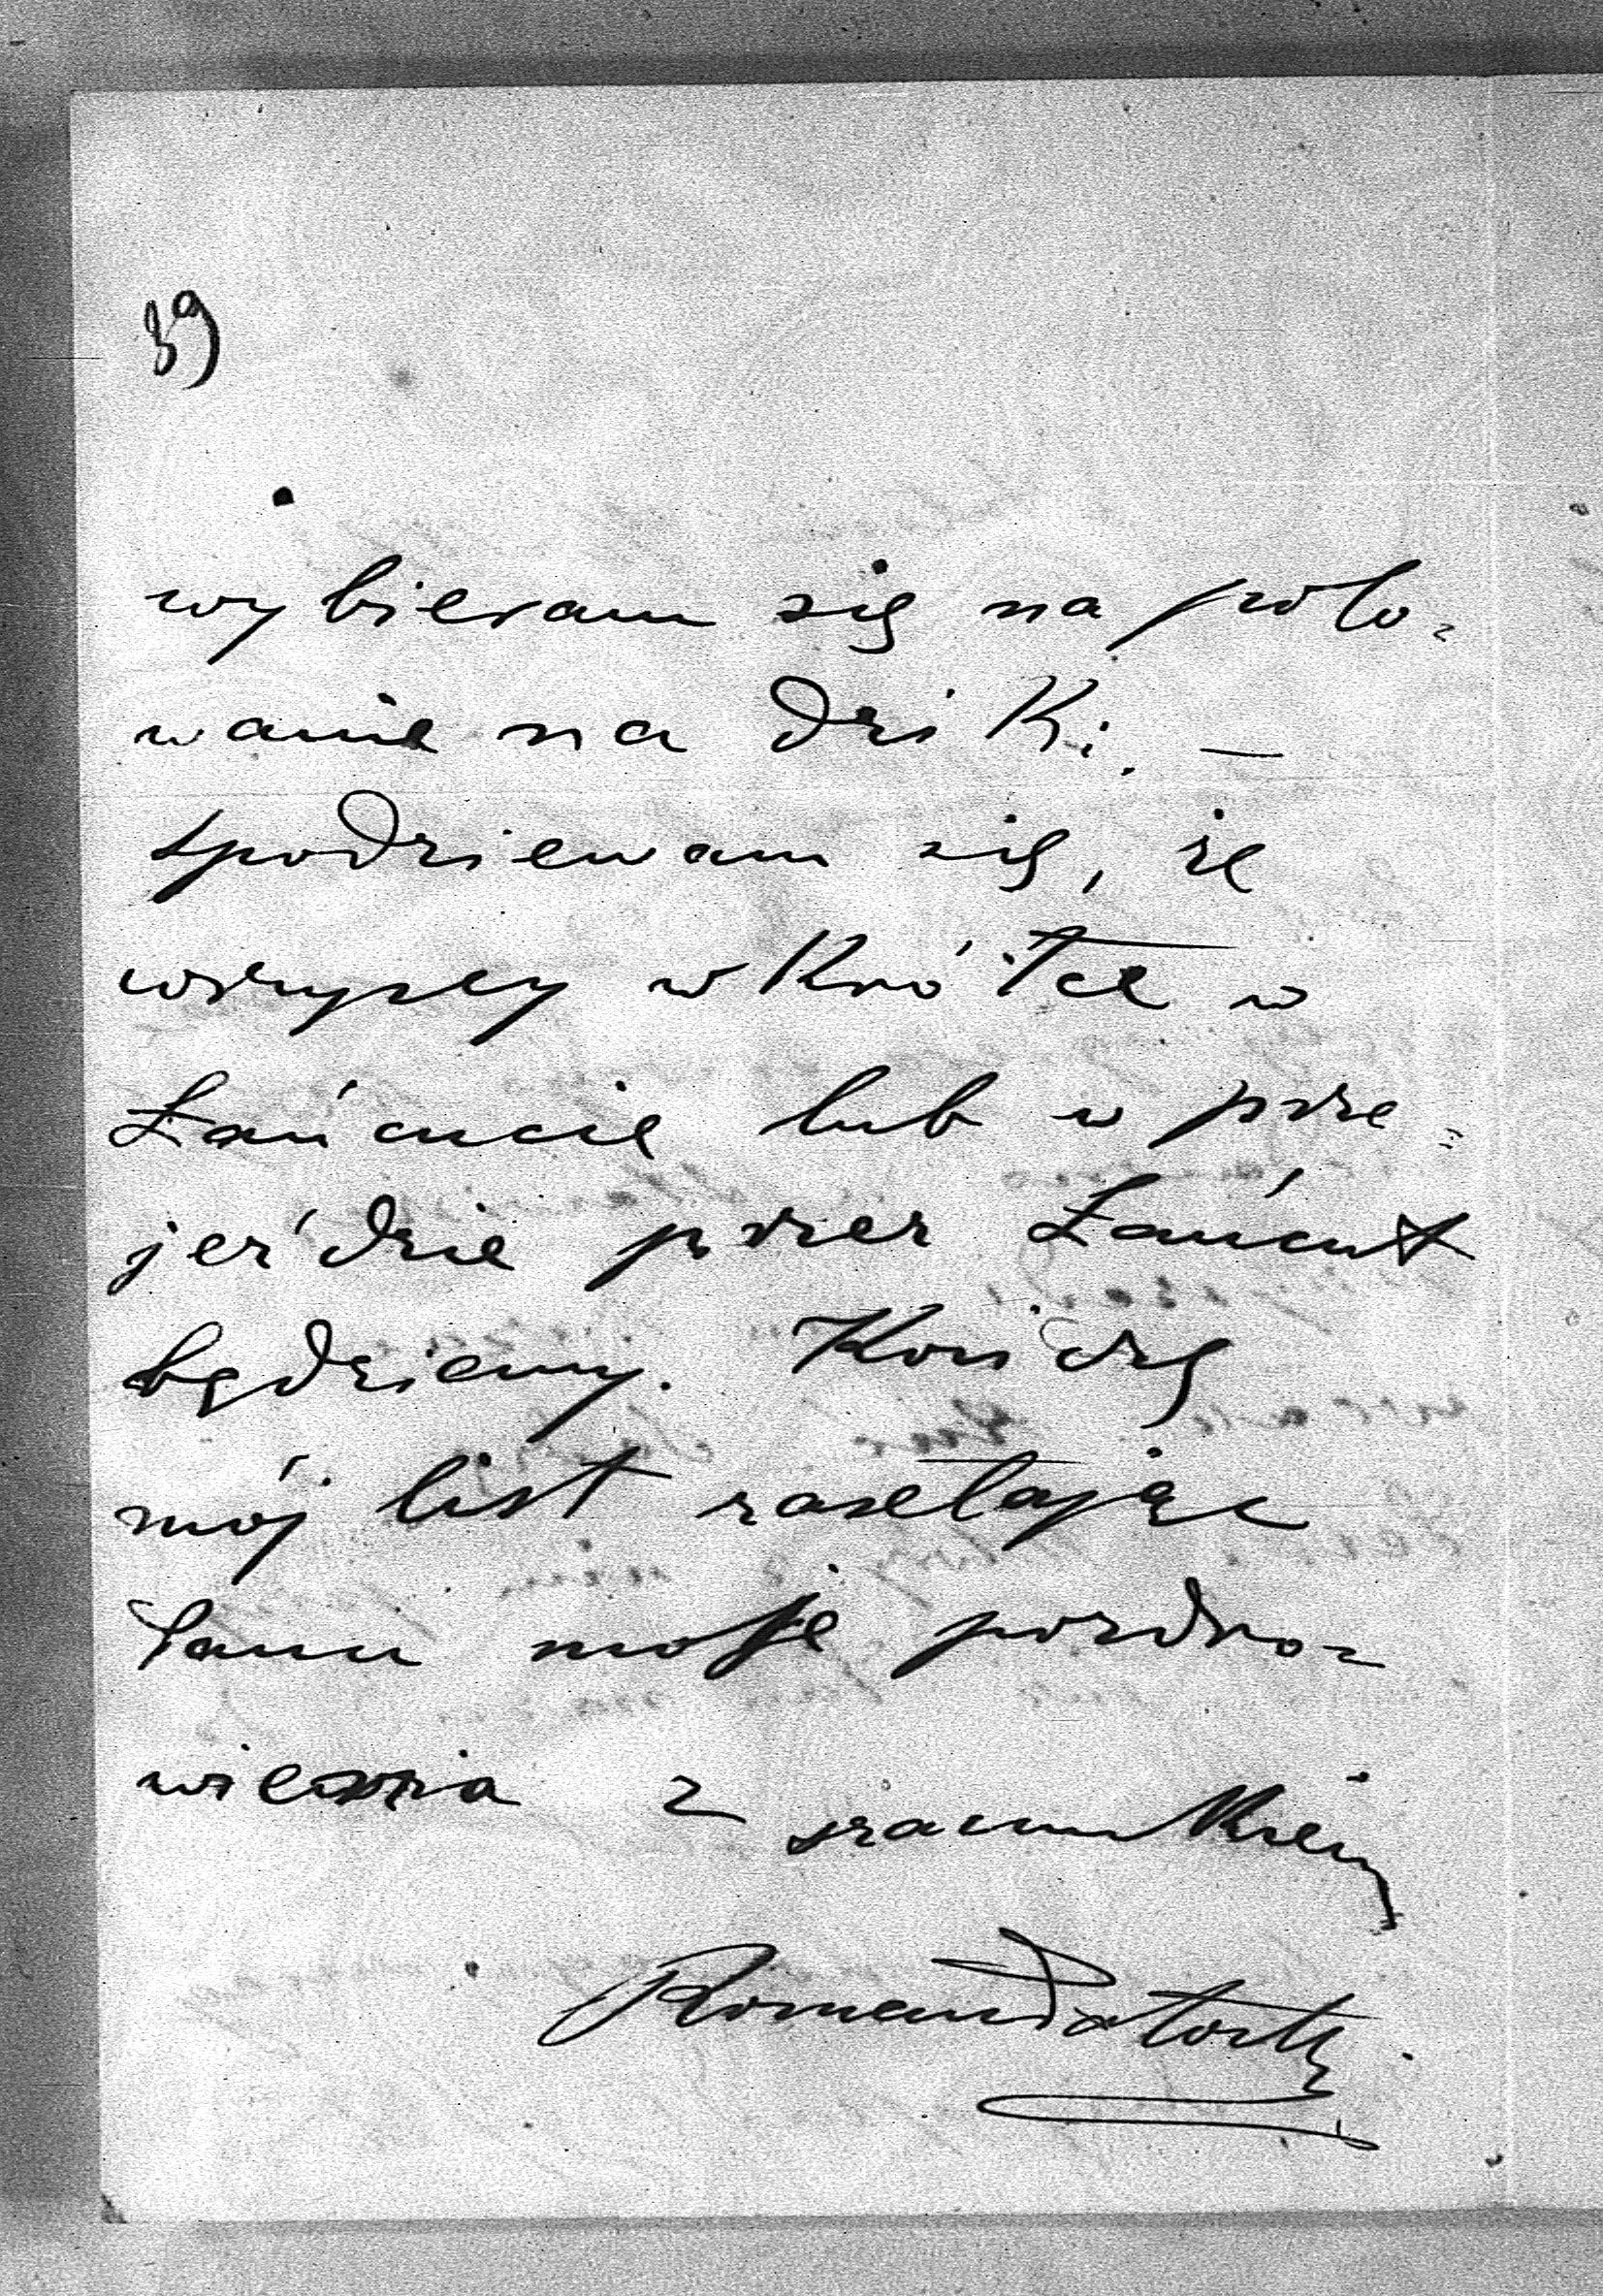 89
wybieram się na polo-
wanie na dziki. —
spodziewam się, że
wszyscy wkrótce w
Łańcucie lub w prze-
jeździe przez Łańcut
będziemy. Kończę
mój list zasełając
Panu moje pozdro-
wienia z szacunkiem
Roman Potocki